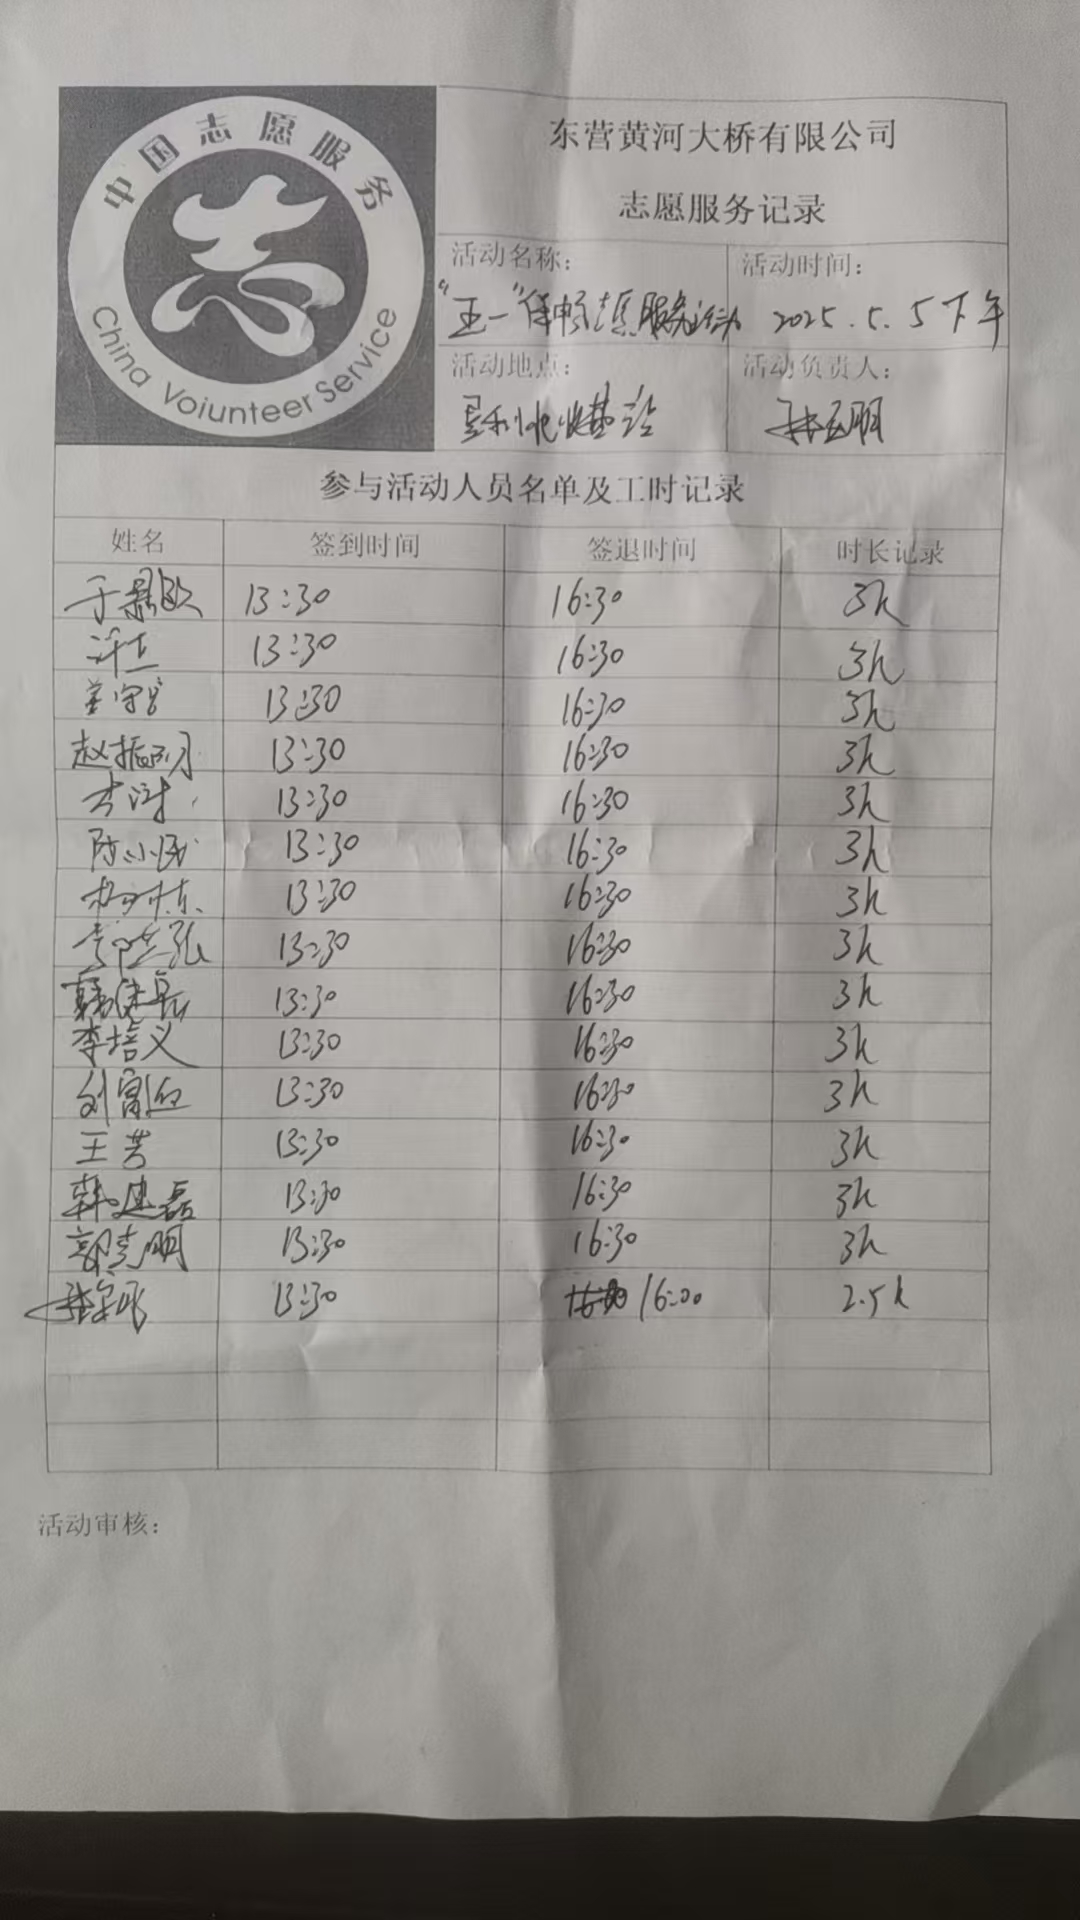 中国志愿服务
China Voiunteer Service
东营黄河大桥有限公司
志愿服务记录
活动名称： 活动时间：
"五一"保畅志愿服务活动 2025.5.5下午
活动地点： 活动负责人：
收费站
参与活动人员名单及工时记录
姓名 签到时间 签退时间 时长记录
于 13:30 16:30 3h
13:30 16:30 3h
13:30 16:30 3h
赵振 13:30 16:30 3h
13:30 16:30 3h
陈小 13:30 16:30 3h
13:30 16:30 3h
13:30 16:30 3h
13:30 16:30 3h
李培义 13:30 16:30 3h
刘 13:30 16:30 3h
王芳 13:30 16:30 3h
韩建磊 13:30 16:30 3h
郭克明 13:30 16:30 3h
13:30 16:00 2.5h
活动审核：